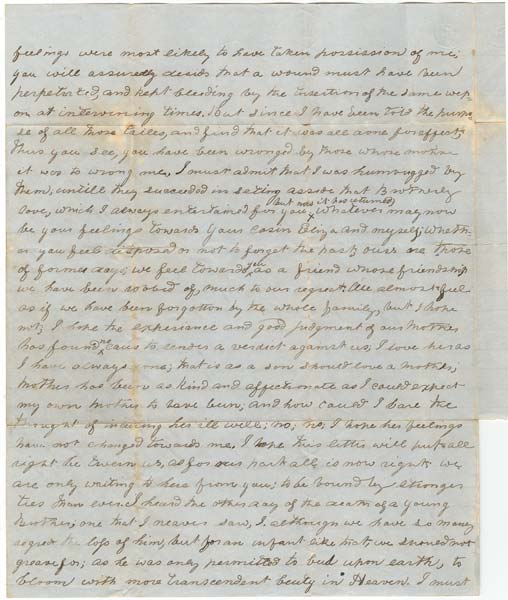 feelings were most likely to have taken possission of me;
you will assuredly decide that a wound must have been
perpetrated, and kept bleeding by the insertion of the same wep-
on at intervening times. But since I have been told the purpo-
se of all those tailes, and find that it was all done for affect;
thus you see, you have been wronged by those whose motive
it was to wrong me, I must admit that I was humbuged by
them; untill they succeeded in seting asside that Brotherly
love, which I always entertained for you,
but now it has returned)
Whatever may now
be your feelings towards your cosin Eliza and myself; wheth-
er you feel disposed or not to forget the past; ours are those
of former days; we feel towards you as a friend whose friendship
we have been robed of, much to our regret. We almost feel
as if we have been forgotton by the whole family, but I hope
not; I hope the experiance and good judgment of our Mother
has found no caus to render a verdict against us; I love her as
I have always done; that is as a son should love a Mother;
Mother has been as kind and affectionate as I could expect
my own Mother to have been; and how could I bare the
thought of her ill will; no, no, I hope her feelings
have not changed towards me. I hope this letter will put all
right be tween us, as for our part all is now right; we
are only writing to hear from you; to be bound by stronger
ties than ever. I heard the other day of the death of a young
Brother; one that I neaver saw, I although we have so many
regred the loss of him, but for an infant like that; we should not
greave for; as he was only permitted to bud upon earth, to
bloom with more transcendent beuty in Heaven. I must